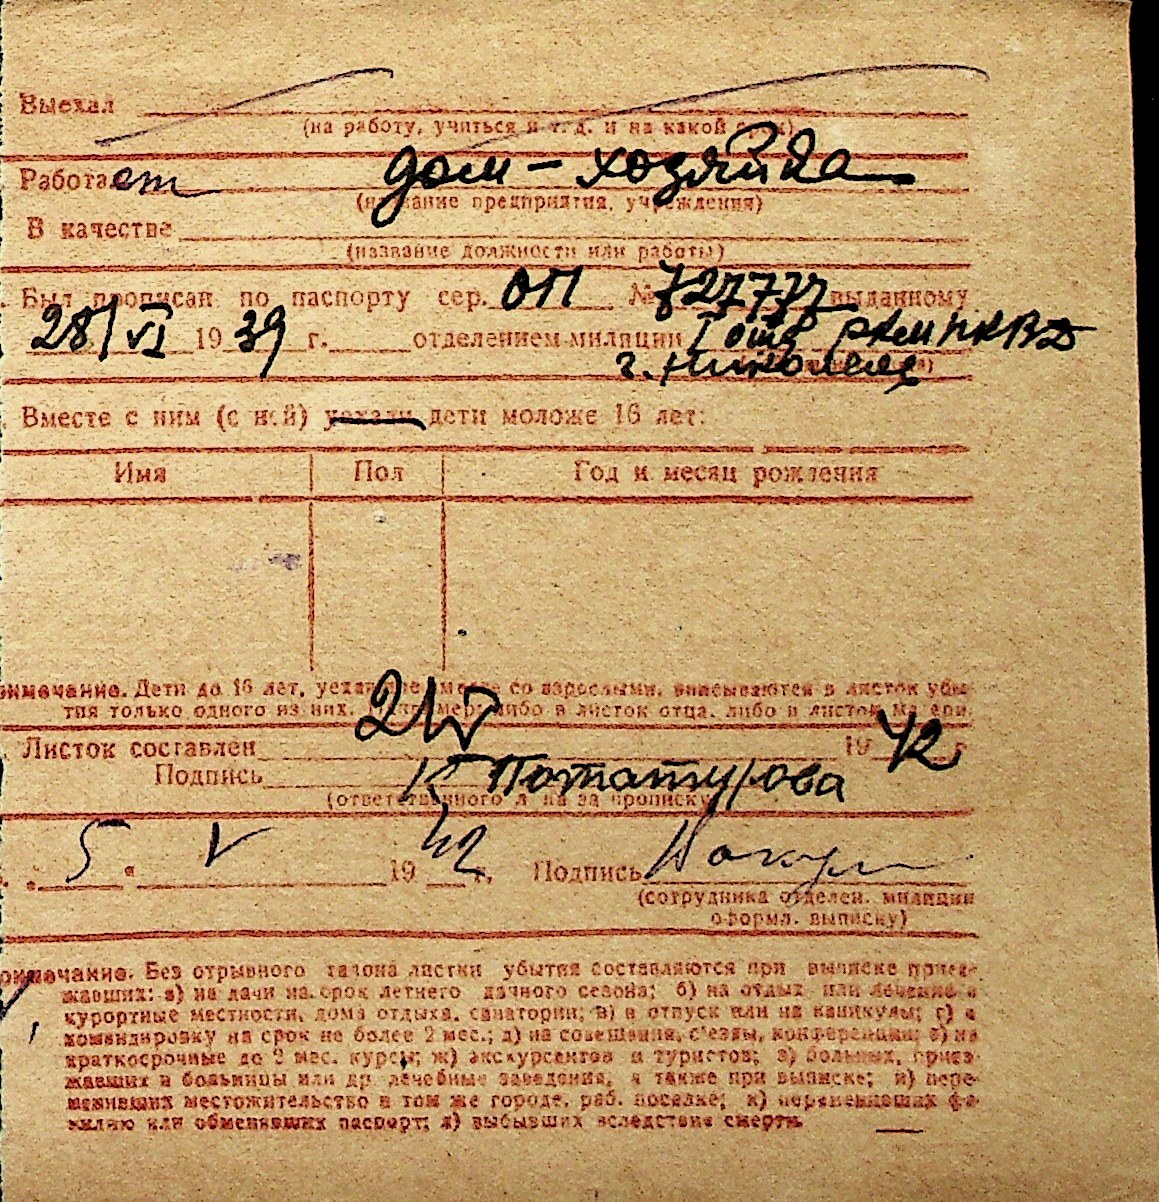 Выехал
(на работу, учиться и т. д. и на какой срок)
Работает дом-хозяйка
(название предприятия, учреждения)
В качестве
(название должности или работы)
Был прописан по паспорту сер. ОП № 727777 выданному
28/VI 1939 г. отделением милиции РКМ НКВД
г.
Вместе с ним (с ней) уехали дети моложе 16 лет:
Имя Пол Год и месяц рождения
римечание. Дети до 16 лет, уехавшие вместе со взрослыми, вписываются в листок убы-
тия только одного из них, например: либо в листок отца, либо в листок матери.
Листок составлен 21/V 1942 г.
Подпись К Потатурова
(ответственного лица за прописку)
5. V 1942 г. Подпись
(сотрудника отделен. милиции
оформл. выписку)
римечание. Без отрывного талона листки убытия составляются при выписке приез-
жавших: а) на дачи на срок летнего дачного сезона; б) на отдых или лечение в
курортные местности, дома отдыха, санатории; в) в отпуск или на каникулы; г) в
командировку на срок не более 2 мес.; д) на совещания, с'езды, конференции; е) на
краткосрочные до 2 мес. курсы; ж) экскурсантов и туристов; з) больных, приез-
жавших в больницы или др. лечебные заведения, а также при выписке; и) пере-
менивших местожительство в том же городе, раб. поселке; к) переменивших фа-
милию или обменявших паспорт; л) выбывших вследствие смерти.